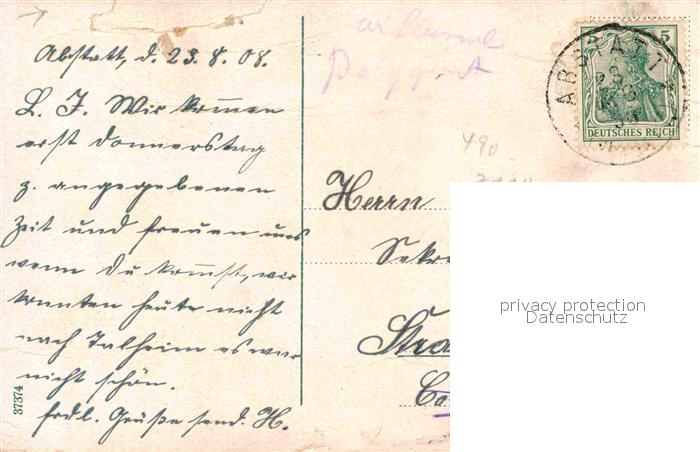 Abstatt, d. 23.8.08.
L. J. Wir kommen
erst Donnerstag
z. angegebenen
Zeit und freuen uns
wenn Du kommst, wir
konnten heute nicht
nach Talheim es war
nicht schön.
frdl. Grüße send. H.
37374
490
Herrn
Sekre
Stra
5 5
DEUTSCHES REICH
ABSTATT
privacy protection
Datenschutz